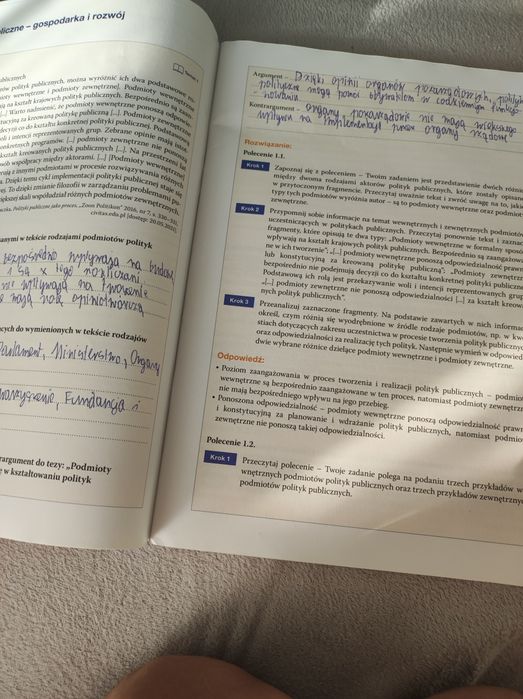 liczne – gospodarka i rozwój
publicznych
rów polityk publicznych, można wyróżnić ich dwa podstawowe ro-
mioty wewnętrzne i podmioty zewnętrzne]. Podmioty wewnętrz-
ją na kształt krajowych polityk publicznych. Bezpośrednio są zaan-
[...] Warto nadmienić, że podmioty wewnętrzne ponoszą odpowie-
tucyjną za kreowaną politykę publiczną [...]. Podmioty zewnętrzne
decyzji co do kształtu konkretnej polityki publicznej. Podstawową
oli i intencji reprezentowanych grup. Zebrane opinie mają istotny
konkretnych programów. [...] podmioty zewnętrzne nie ponoszą
kształt kreowanych polityk publicznych [...]. Na przestrzeni
sób współpracy między aktorami. [...] [Podmioty wewnętrzne]
rują z innymi podmiotami w procesie rozwiązywania różnych
a. Dzięki temu cykl implementacji polityki publicznej stale
ej. To dzięki zmianie filozofii w zarządzaniu problemami pu-
większej skali podmiotów zewnętrznych.
Polityka publiczna jako proces, „Zoon Politikon" 2016, nr 7, s. 330–331,
civitas.edu.pl [dostęp: 20.05.2021].
anymi w tekście rodzajami podmiotów polityk
bezpośrednio wpływają na budowę
i są z tego rozliczani
nie wpływają na tworzenie
mają rolę opiniotwórczą
ących do wymienionych w tekście rodzajów
Parlament, Ministerstwo, Organy
Stowarzyszenie, Fundacja i
rargument do tezy: „Podmioty
ę w kształtowaniu polityk
Argument – Dzięki opinii organów pozarządowych, polityki
polityczne mogą pomóc obywatelom w codziennym funkcjo-
nowaniu
Kontrargument – organy pozarządowe nie mają większego
wpływu na implementację praw organy rządowe
Rozwiązanie:
Polecenie 1.1.
Krok 1 Zapoznaj się z poleceniem – Twoim zadaniem jest przedstawienie dwóch różnic
między dwoma rodzajami aktorów polityk publicznych, które zostały opisane
w przytoczonym fragmencie. Przeczytaj uważnie tekst i zwróć uwagę na to, jakie
typy tych podmiotów wyróżnia autor – są to podmioty wewnętrzne oraz podmioty
zewnętrzne.
Krok 2 Przypomnij sobie informacje na temat wewnętrznych i zewnętrznych podmiotów
uczestniczących w politykach publicznych. Przeczytaj ponownie tekst i zaznacz
fragmenty, które opisują te dwa typy: „Podmioty wewnętrzne w formalny sposób
wpływają na kształt krajowych polityk publicznych. Bezpośrednio są zaangażowane
w ich tworzenie"; „[...] podmioty wewnętrzne ponoszą odpowiedzialność prawną
lub konstytucyjną za kreowaną politykę publiczną"; „Podmioty zewnętrzne
bezpośrednio nie podejmują decyzji co do kształtu konkretnej polityki publicznej.
Podstawową ich rolą jest przekazywanie woli i intencji reprezentowanych grup";
„[...] podmioty zewnętrzne nie ponoszą odpowiedzialności [...] za kształt kreowa-
nych polityk publicznych".
Krok 3 Przeanalizuj zaznaczone fragmenty. Na podstawie zawartych w nich informacji
określ, czym różnią się wyodrębnione w źródle rodzaje podmiotów, np. w kwe-
stiach dotyczących zakresu uczestnictwa w procesie tworzenia polityk publicznych
oraz odpowiedzialności za realizację tych polityk. Następnie wymień w odpowiedzi
dwie wybrane różnice dzielące podmioty wewnętrzne i podmioty zewnętrzne.
Odpowiedź:
• Poziom zaangażowania w proces tworzenia i realizacji polityk publicznych – podmioty
wewnętrzne są bezpośrednio zaangażowane w ten proces, natomiast podmioty zewnętrzne
nie mają bezpośredniego wpływu na jego przebieg.
• Ponoszona odpowiedzialność – podmioty wewnętrzne ponoszą odpowiedzialność prawną
i konstytucyjną za planowanie i wdrażanie polityk publicznych, natomiast podmioty
zewnętrzne nie ponoszą takiej odpowiedzialności.
Polecenie 1.2.
Krok 1 Przeczytaj polecenie – Twoje zadanie polega na podaniu trzech przykładów we-
wnętrznych podmiotów polityk publicznych oraz trzech przykładów zewnętrznych
podmiotów polityk publicznych.